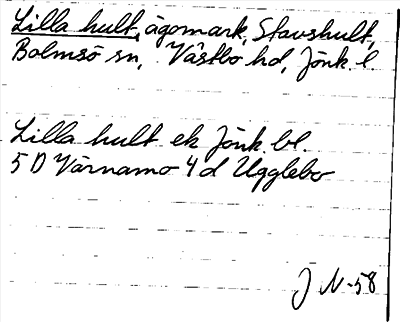 Lilla hult, ägomark, Stavshult,
Bolmsö sn, Västbo hd, Jönk. l.
Lilla hult ek Jönk. bl.
5 D Värnamo 4 d Ugglebo
J N-58